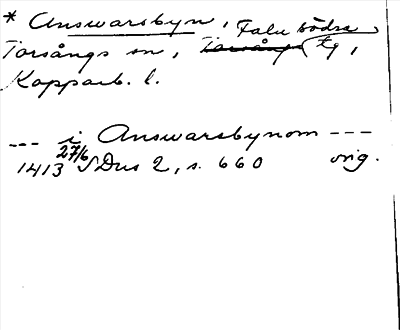 * Answarsbyn, Falu södra
Torsångs sn, Torsångs tg,
Kopparb. l.
--- i Answarsbynom ---
1413 27/6 SDns 2, s. 660 orig.